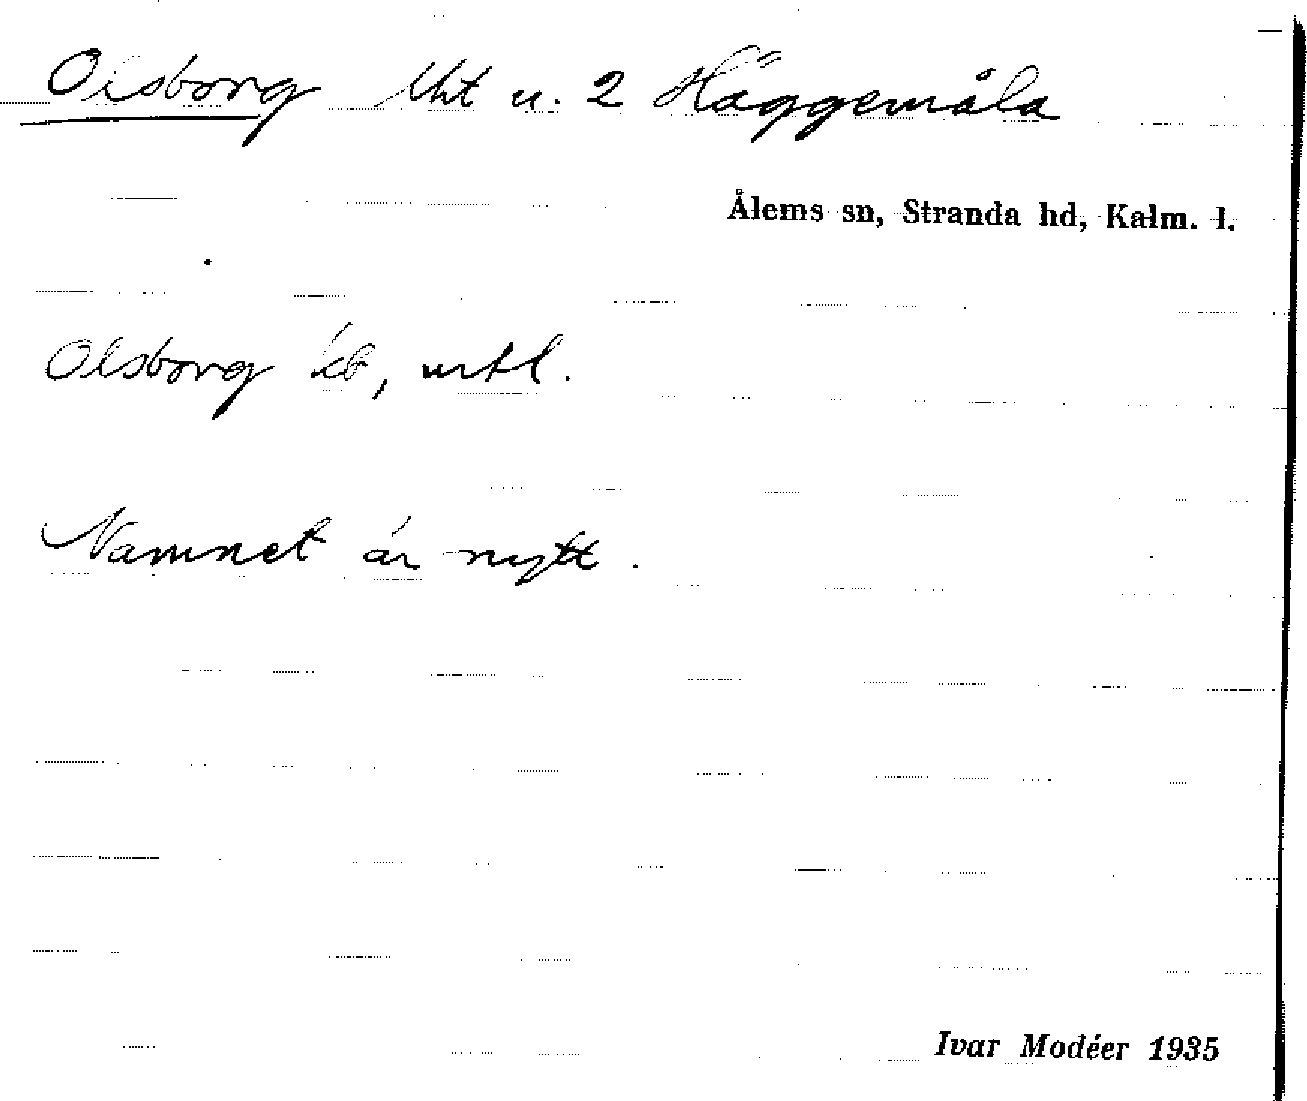 Olsborg lht u. 2 Häggemåla
Ålems sn, Stranda hd, Kalm. l.
Olsborg kb, urtl.
Namnet är nytt.
Ivar Modéer 1935